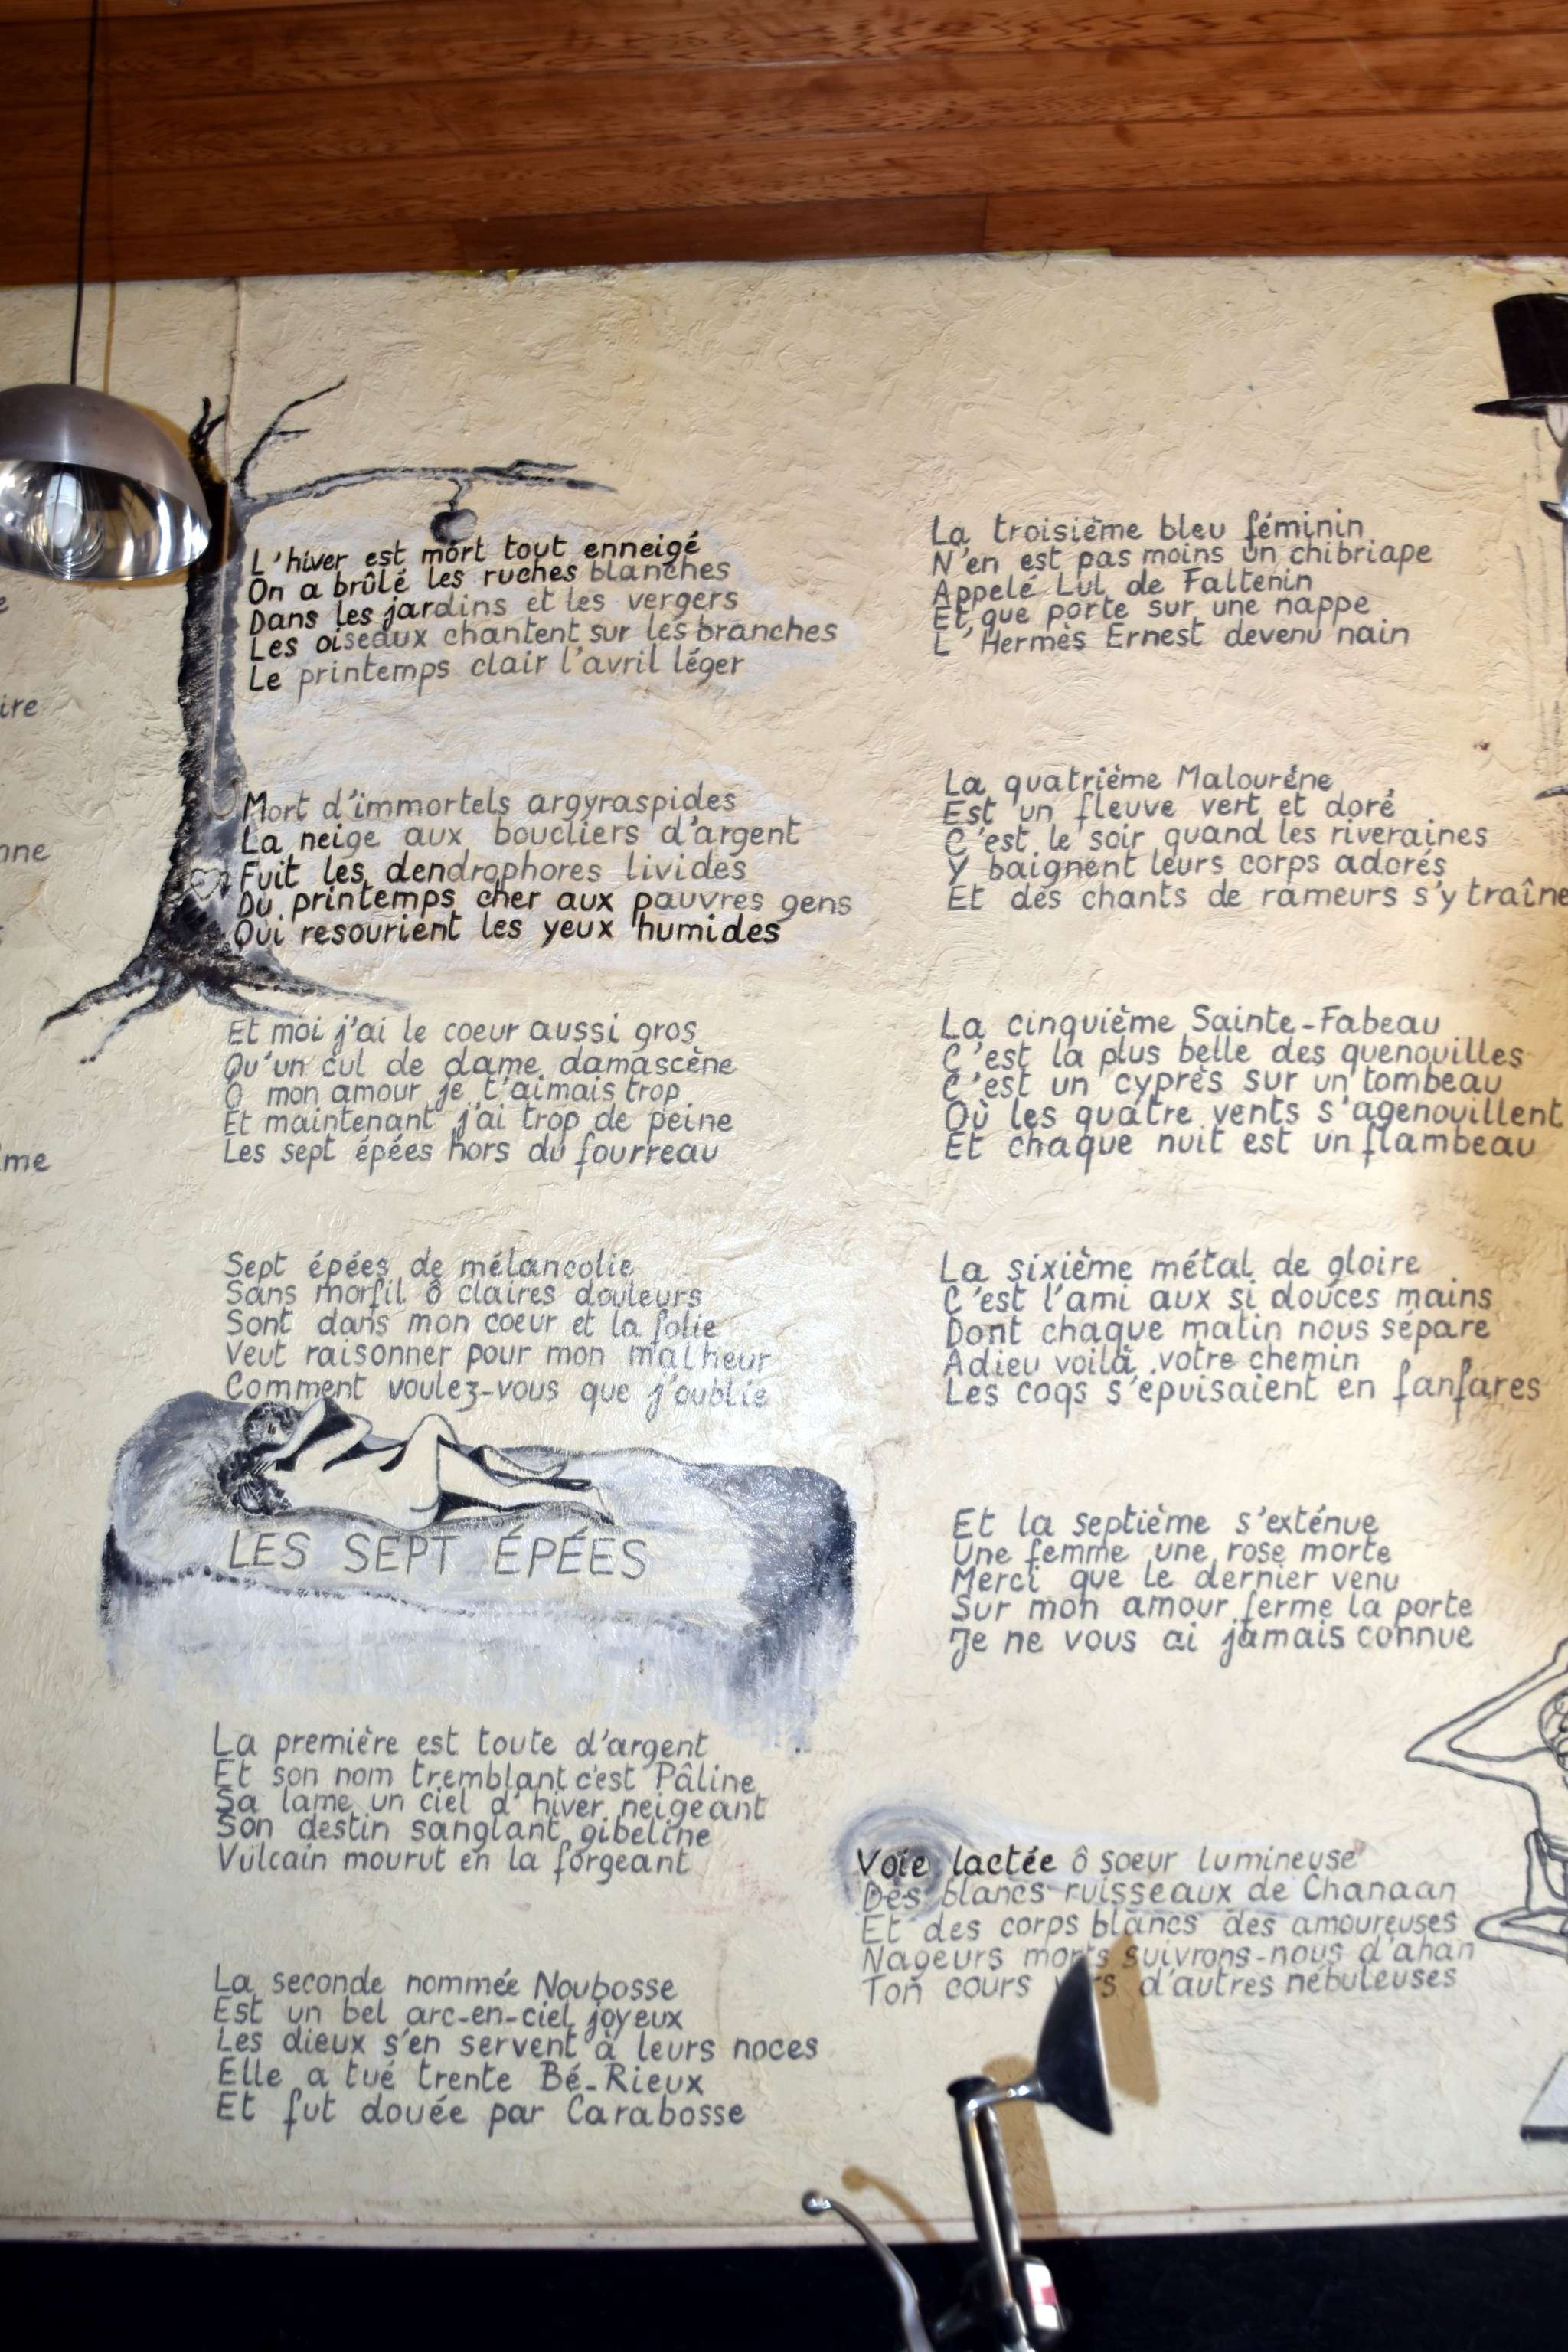 L'hiver est mort tout enneigé
On a brûlé les ruches blanches
Dans les jardins et les vergers
Les oiseaux chantent sur les branches
Le printemps clair l'avril léger
Mort d'immortels argyraspides
La neige aux boucliers d'argent
Fuit les dendrophores livides
Du printemps cher aux pauvres gens
Qui resourient les yeux humides
Et moi j'ai le coeur aussi gros
Qu'un cul de dame damascène
O mon amour je t'aimais trop
Et maintenant j'ai trop de peine
Les sept épées hors du fourreau
Sept épées de mélancolie
Sans morfil ô claires douleurs
Sont dans mon coeur et la folie
Veut raisonner pour mon malheur
Comment voulez-vous que j'oublie
LES SEPT ÉPÉES
La première est toute d'argent
Et son nom tremblant c'est Pâline
Sa lame un ciel d'hiver neigeant
Son destin sanglant gibeline
Vulcain mourut en la forgeant
La seconde nommée Noubosse
Est un bel arc-en-ciel joyeux
Les dieux s'en servent à leurs noces
Elle a tué trente Bé-Rieux
Et fut douée par Carabosse
La troisième bleu féminin
N'en est pas moins un chibriape
Appelé Lul de Faltenin
Et que porte sur une nappe
L'Hermès Ernest devenu nain
La quatrième Malourène
Est un fleuve vert et doré
C'est le soir quand les riveraines
Y baignent leurs corps adorés
Et des chants de rameurs s'y traîne
La cinquième Sainte-Fabeau
C'est la plus belle des quenouilles
C'est un cyprès sur un tombeau
Où les quatre vents s'agenouillent
Et chaque nuit est un flambeau
La sixième métal de gloire
C'est l'ami aux si douces mains
Dont chaque matin nous sépare
Adieu voilà votre chemin
Les coqs s'épuisaient en fanfares
Et la septième s'exténue
Une femme une rose morte
Merci que le dernier venu
Sur mon amour ferme la porte
Je ne vous ai jamais connue
Voie lactée ô soeur lumineuse
Des blancs ruisseaux de Chanaan
Et des corps blancs des amoureuses
Nageurs morts suivrons-nous d'ahan
Ton cours d'autres nébuleuses